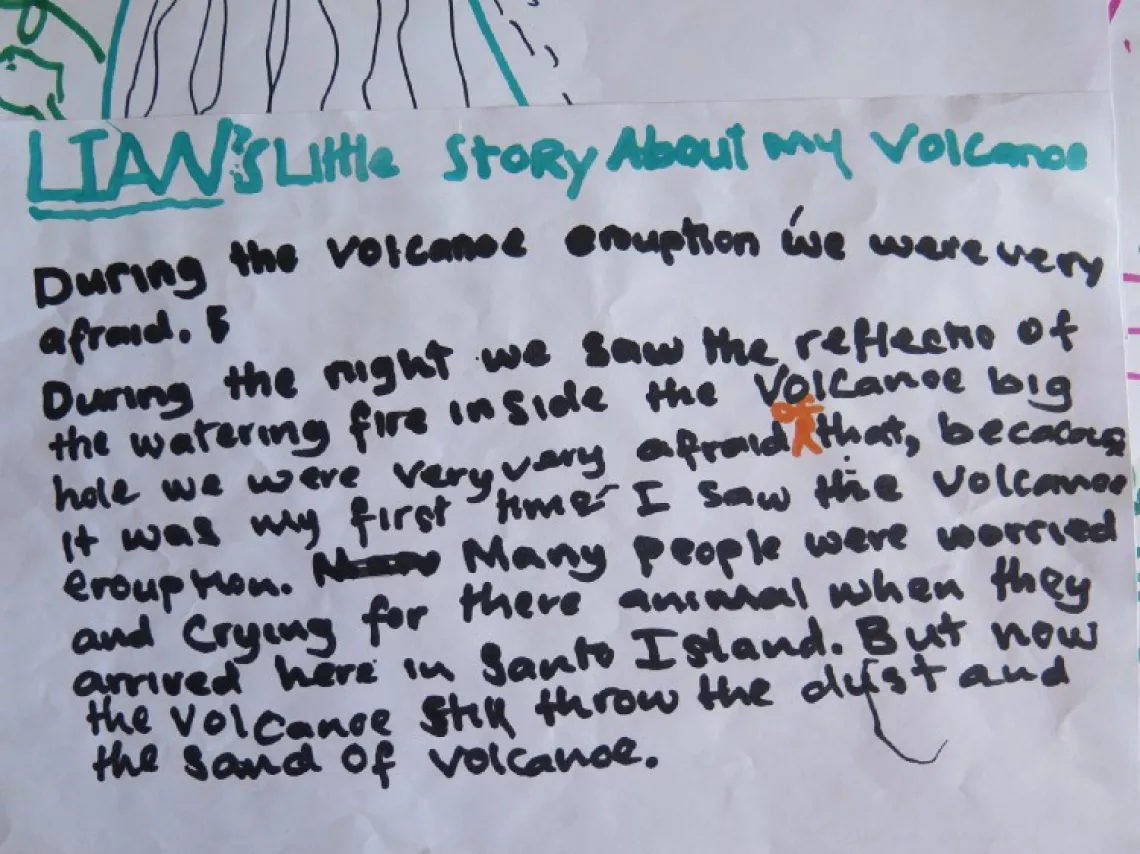 LIAN'S Little Story About my Volcanoe
During the volcanoe eruption we were very
afraid.
During the night we saw the reflectio of
the watering fire inside the Volcanoe big
hole we were very very afraid of that, because
it was my first time I saw the volcanoe
erouption. Many people were worried
and Crying for there animal when they
arrived here in Santo Island. But now
the volcanoe still throw the dust and
the sand of volcanoe.